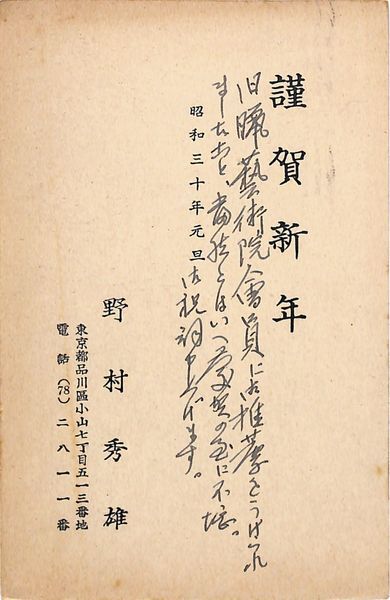 謹賀新年
旧臘藝術院會員に御推挙をうけられ
ましたこと 當然とはいへ慶賀の至に不堪。
御祝詞申上げます。
昭和三十年元旦
野村秀雄
東京都品川區小山七丁目五一三番地
電話(78)二八一一番